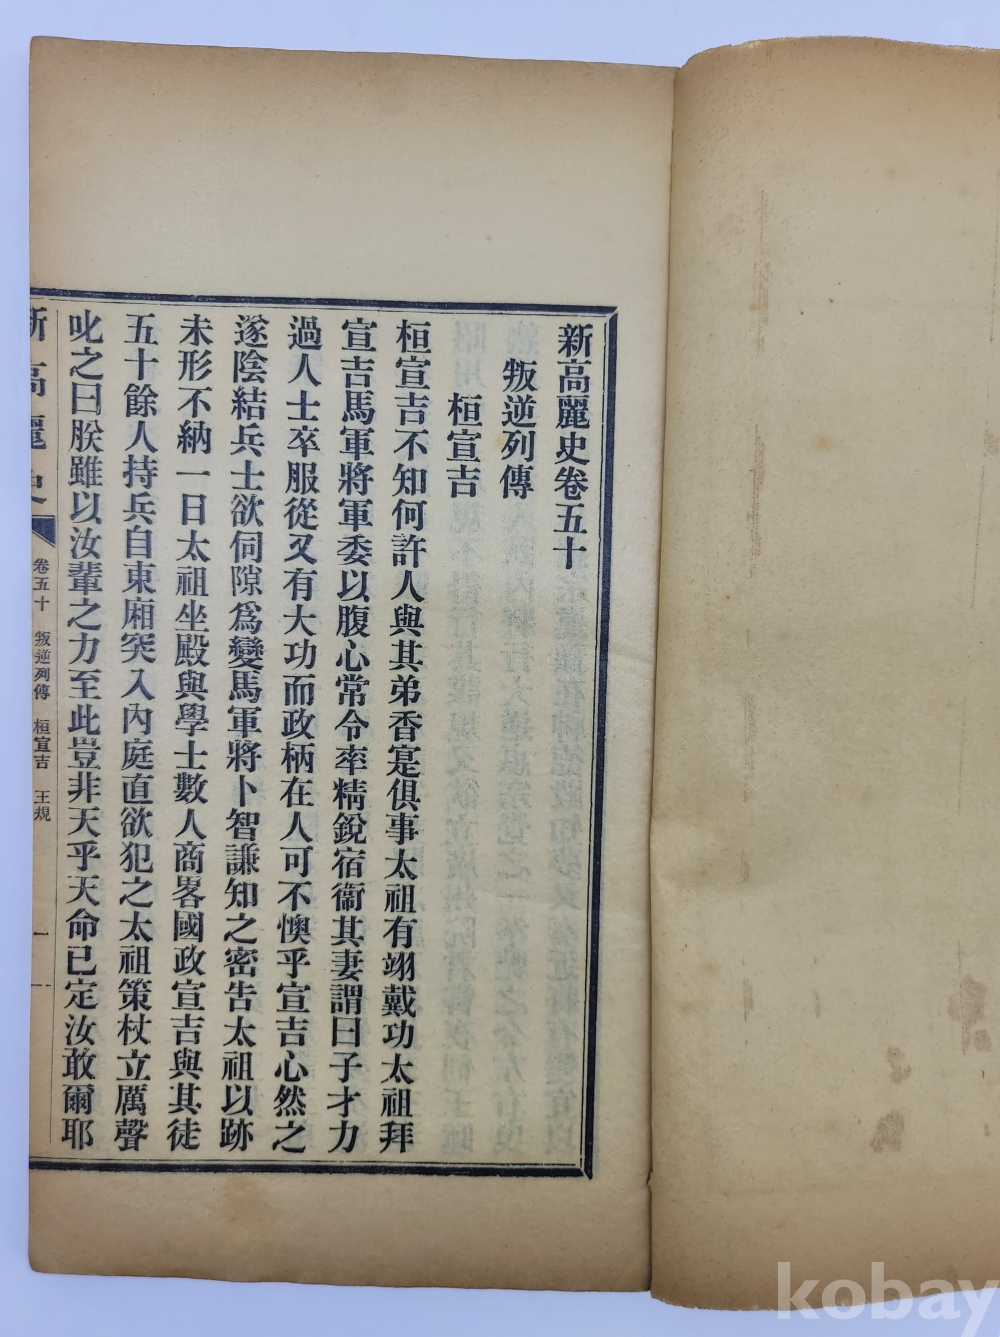 新高麗史卷五十
叛逆列傳
桓宣吉
桓宣吉不知何許人與其弟香寔俱事太祖有翊戴功太祖拜
宣吉馬軍將軍委以腹心常令率精銳宿衞其妻謂曰子才力
過人士卒服從又有大功而政柄在人可不懊乎宣吉心然之
遂陰結兵士欲伺隙爲變馬軍將卜智謙知之密告太祖以跡
未形不納一日太祖坐殿與學士數人商畧國政宣吉與其徒
五十餘人持兵自東廂突入內庭直欲犯之太祖策杖立厲聲
叱之曰朕雖以汝輩之力至此豈非天乎天命已定汝敢爾耶
新高麗史 卷五十 叛逆列傳 桓宣吉 王規 一
kobay